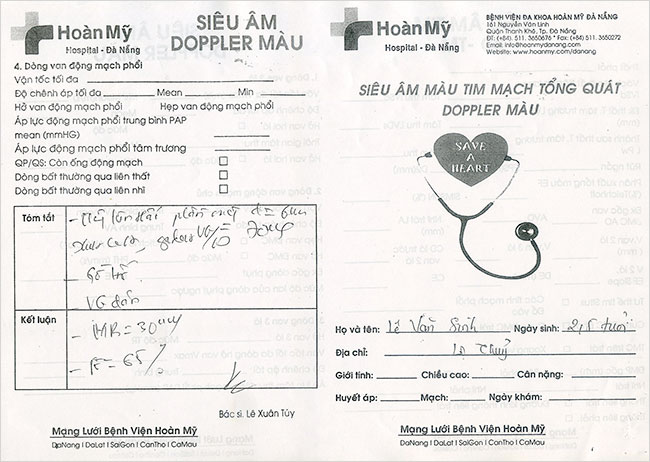 HoànMỹ
Hospital - Đà Nẵng
SIÊU ÂM
DOPPLER MÀU
4. Dòng van động mạch phổi
Vận tốc tối đa
Độ chênh áp tối đa Mean Min
Hở van động mạch phổi Hẹp van động mạch phổi
Áp lực động mạch phổi trung bình PAP
mean (mmHG)
Áp lực động mạch phổi tâm trương
QP/QS: Còn ống động mạch
Dòng bất thường qua liên thất
Dòng bất thường qua liên nhĩ
Tóm tắt
VG dãn
Kết luận
= 30
- = 65%
Bác sĩ. Lê Xuân Túy
Mạng Lưới Bệnh Viện Hoàn Mỹ
DaNang I DaLat I SaiGon I CanTho I CaMau
HoànMỹ
Hospital - Đà Nẵng
BỆNH VIỆN ĐA KHOA HOÀN MỸ ĐÀ NẴNG
161 Nguyễn Văn Linh
Quận Thanh Khê, Tp. Đà Nẵng
ĐT: (+84) 511. 3650676 * Fax: (+84) 511. 3650272
Email: info@hoanmydanang.com
Website: www.hoanmy.com/danang
SIÊU ÂM MÀU TIM MẠCH TỔNG QUÁT
DOPPLER MÀU
SAVE
A
HEART
Họ và tên: Lê Văn Sinh Ngày sinh: 2,5 tuổi
Địa chỉ: Lệ Thuỷ
Giới tính: Chiều cao: Cân nặng:
Huyết áp: Mạch: Ngày khám:
Mạng Lưới Bệnh Viện Hoàn Mỹ
DaNang I DaLat I SaiGon I CanTho I CaMau